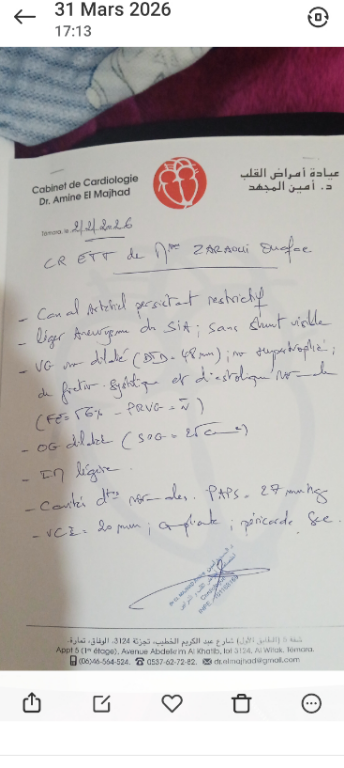 31 Mars 2026
17:13
Cabinet de Cardiologie
Dr. Amine El Majhad
عيادة أمراض القلب
د. أمين المجهد
Témara, le 2/2/2026
CR ETT de Mme ZARAOUI
- Canal Artériel persistant restrictif
- léger Anevrysme du SIA ; sans shunt visible
- VG non dilaté (DTD = 48 mm) ; non hypertrophié ;
de fonction systolique et diastolique normale
(FE = 56% - PRVG = N)
- OG dilatée (SOG = 25 cm²)
- IM légère.
- Cavités dtes normales. PAPS = 27 mmHg
- VCI = 20 mm ; compliante ; péricarde sec.
شقة 5 (الطابق الأول) شارع عبد الكريم الخطيب، تجزئة 3124، الوفاق، تمارة.
Appt 5 (1er étage), Avenue Abdelkrim Al Khatib, lot 3124, Al Wifak, Témara.
(06)46-564-524, 0537-62-72-82, dr.elmajhad@gmail.com